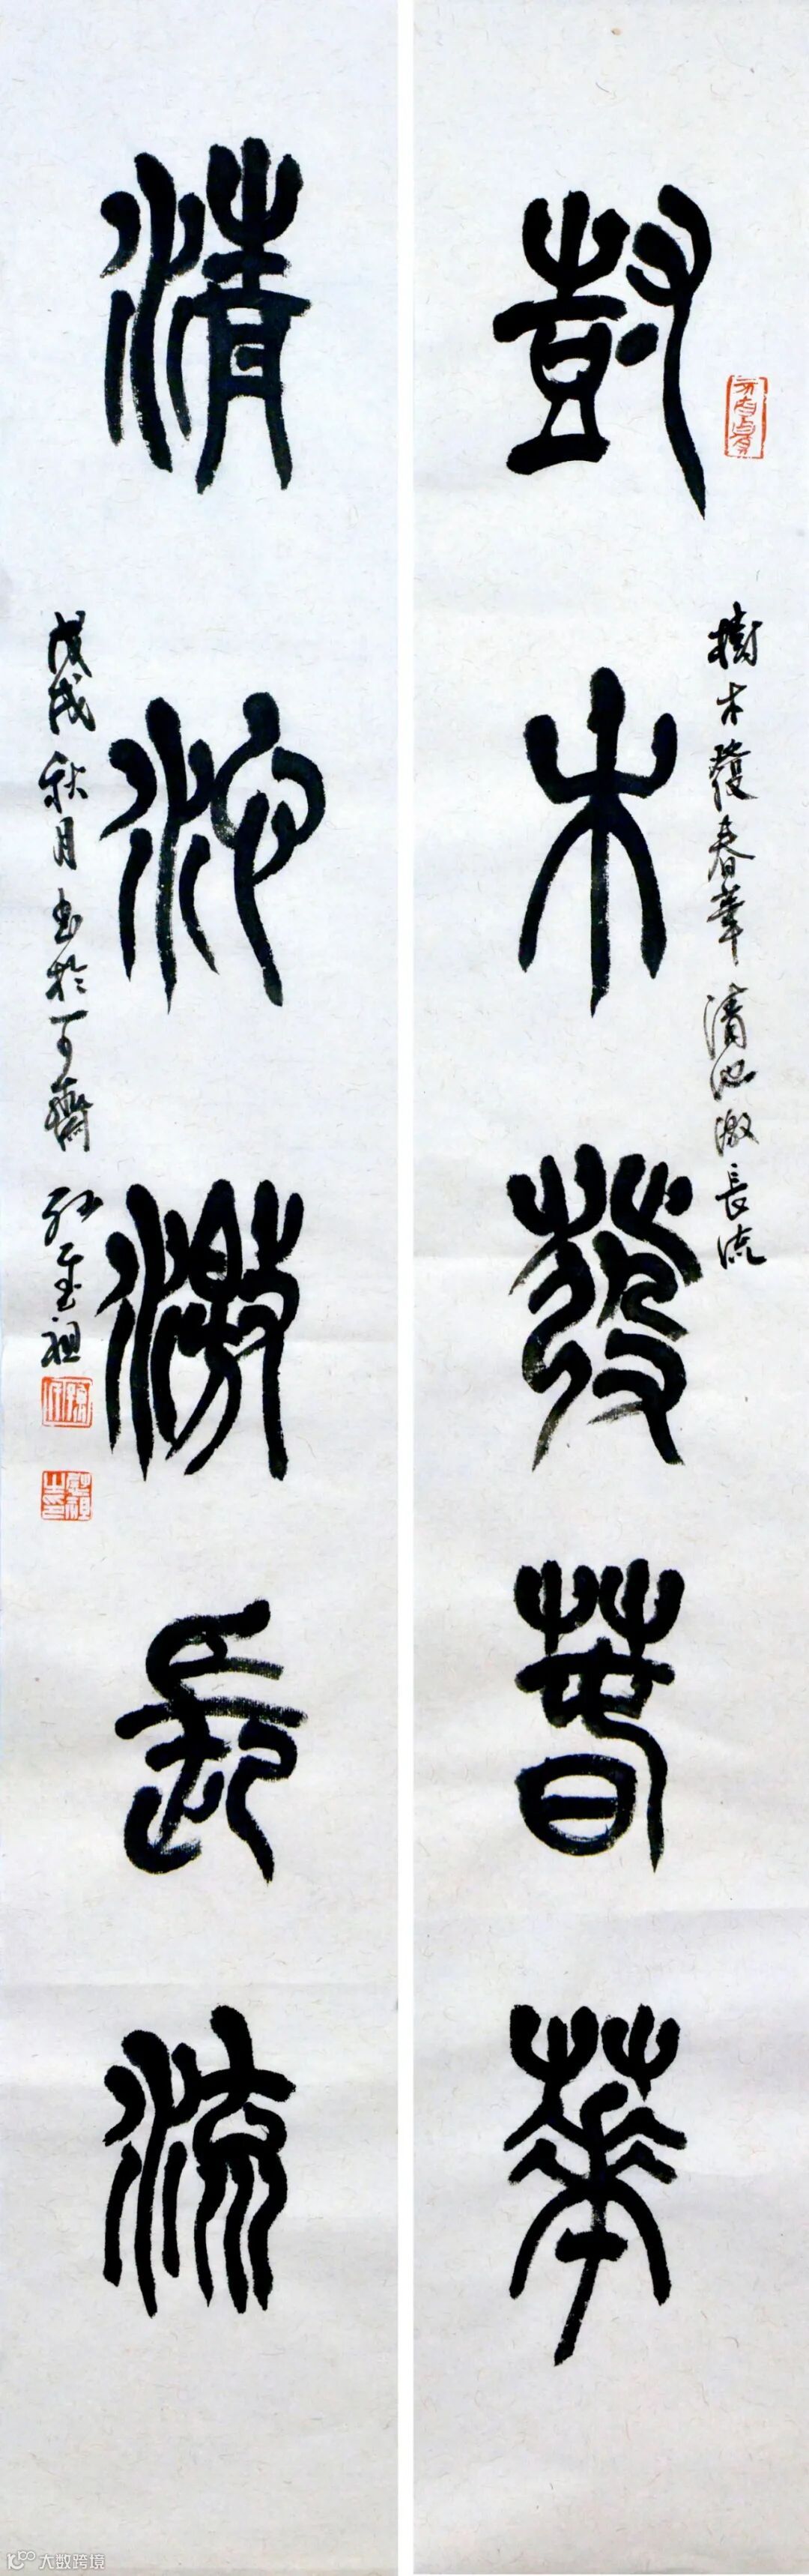 尌木發春華
樹木發春華清池激長流
清池激長流
戊戌秋月書於一可齋
祖
大数跨境